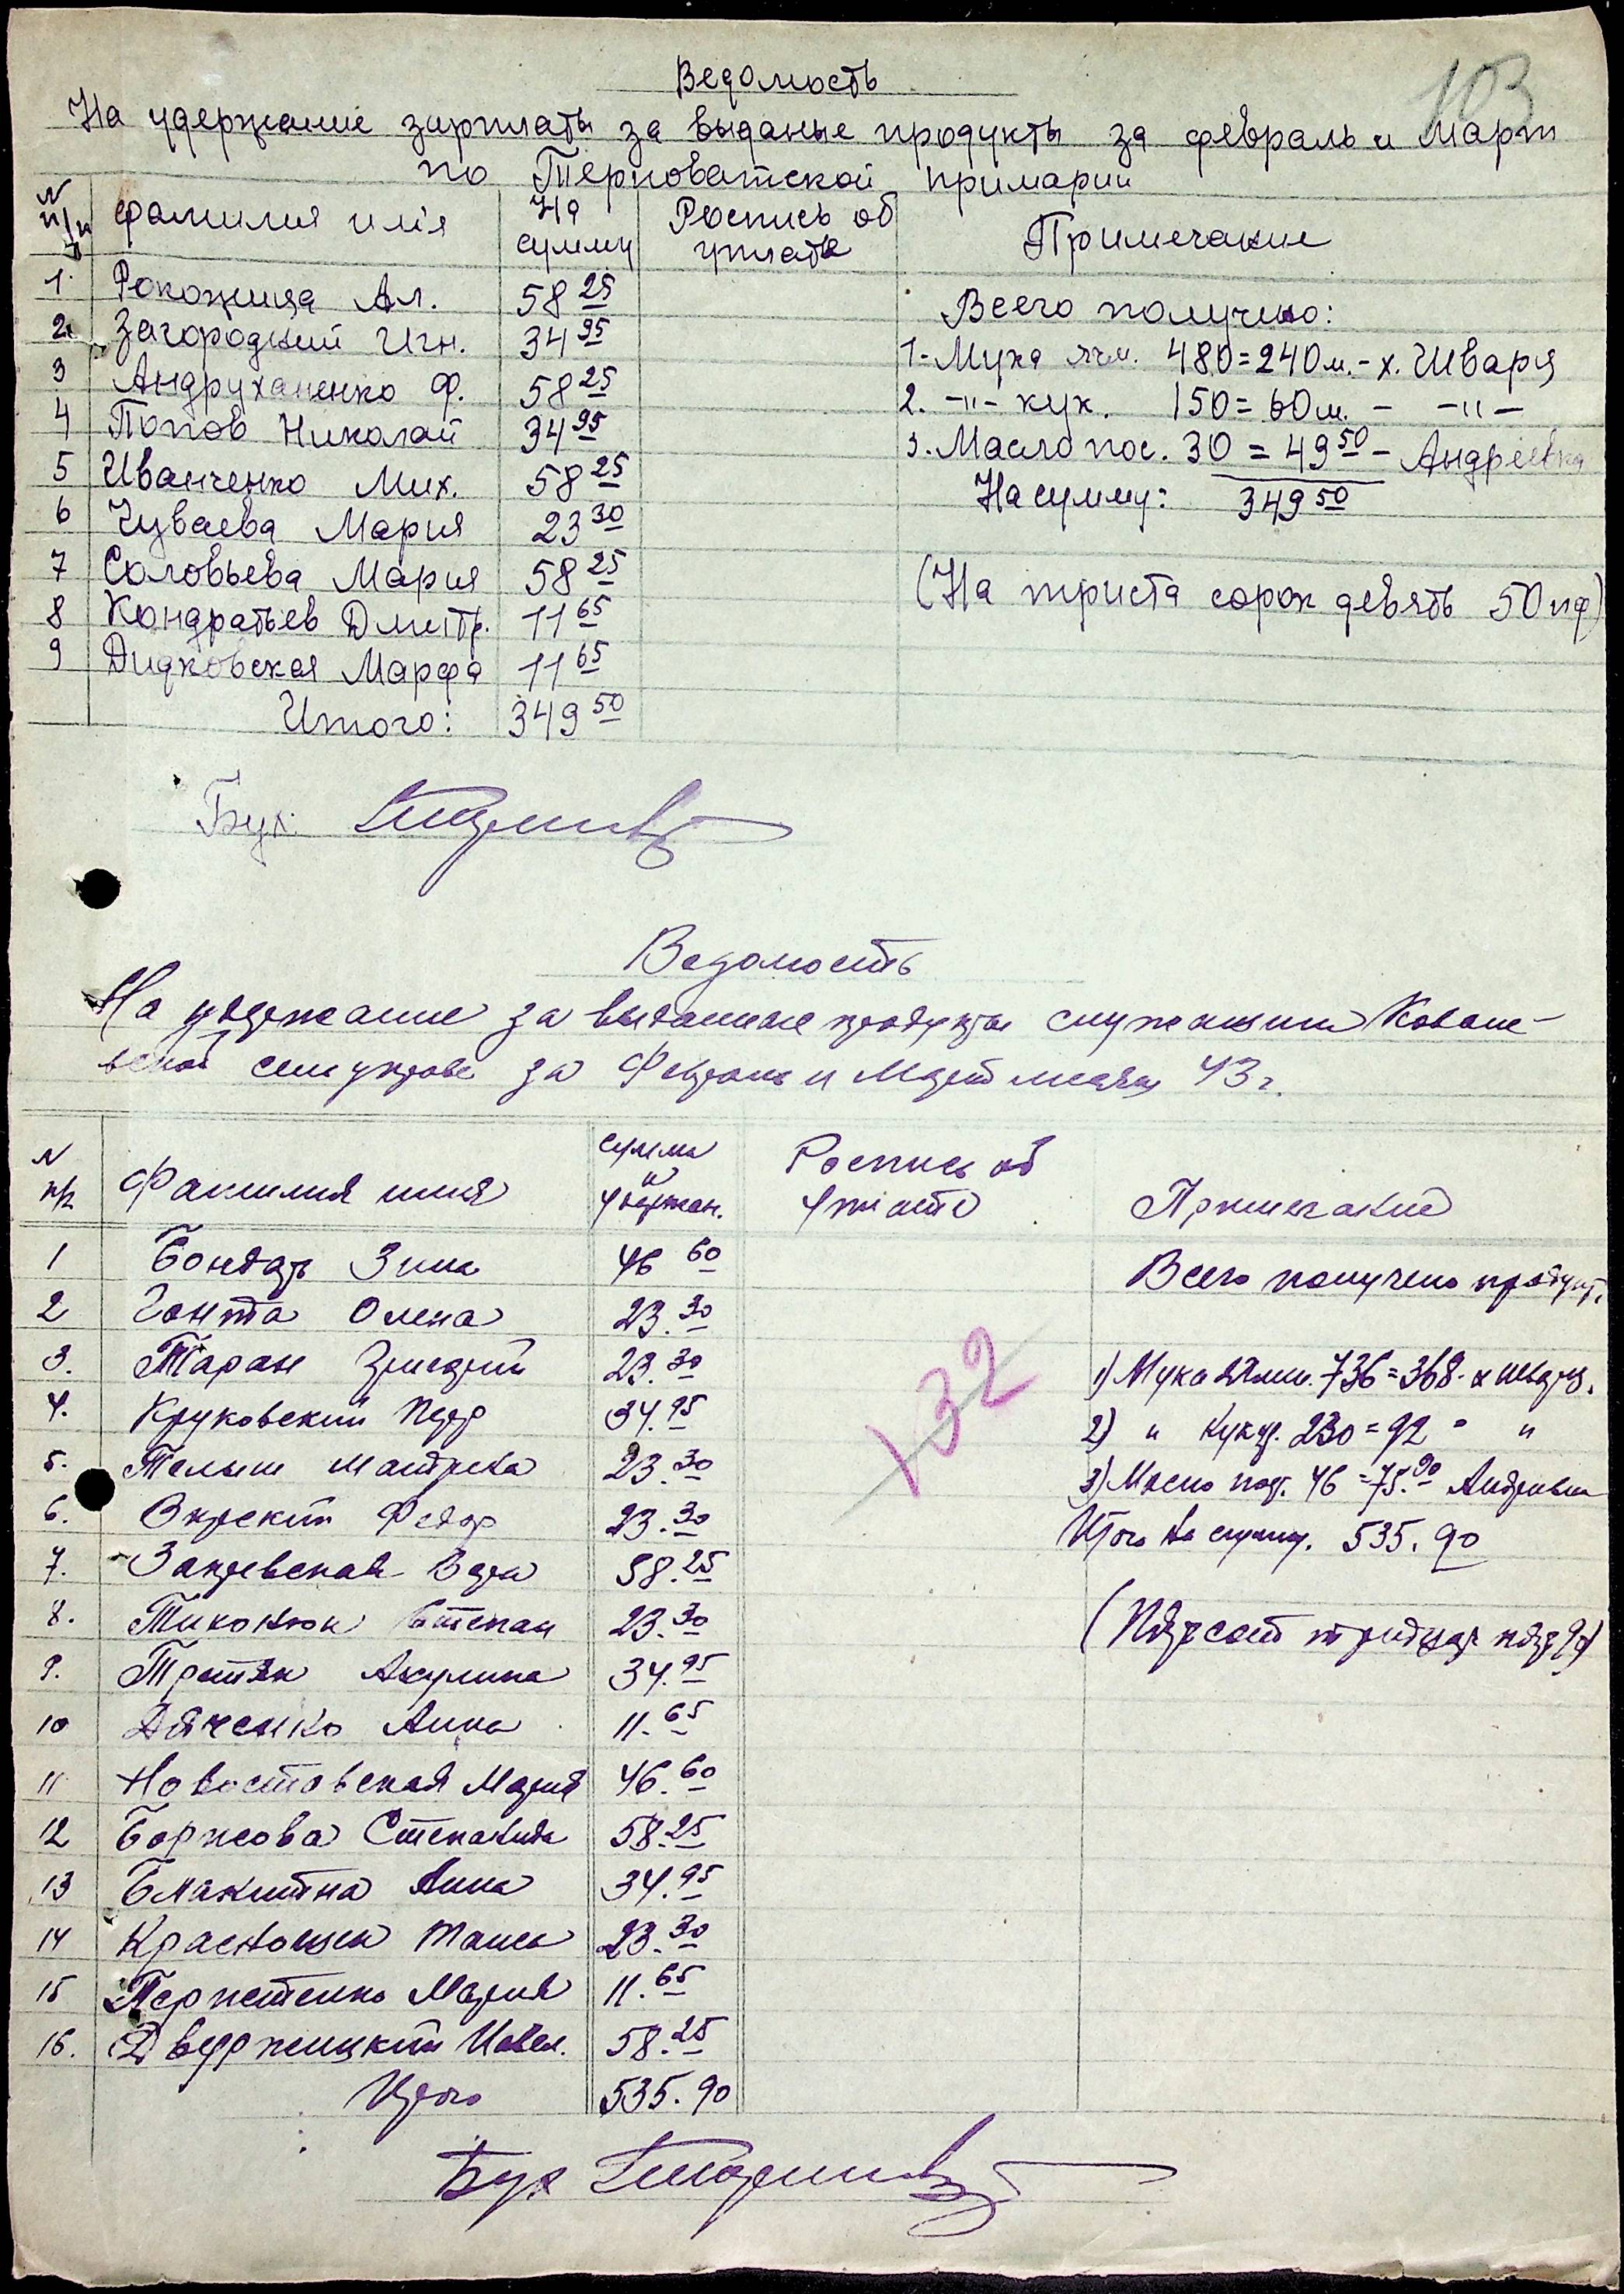 103
Ведомость
На удержание зарплаты за выданые продукты за февраль и март
по Терноватской примарии
N п/п Фамилия имя На сумму Роспись об уплате Примечание
1 Рокожица Ал. 58 25
Всего получено:
2. Загородний Игн. 34 95
1. Мука ячм. 480 = 240 м. - х. Шварц
3 Андруханенко Ф. 58 25
2. -"- кук. 150 = 60 м. - -"-
4 Попов Николай 34 95
3. Масло пос. 30 = 49 50 - Андреевка
5 Иванченко Мих. 58 25
На сумму: 349 50
6 Чуваева Мария 23 30
7 Соловьева Мария 58 25
(На триста сорок девять 50 пф)
8 Кондратьев Дмитр. 11 65
9 Дидковская Марфа 11 65
Итого: 349 50
Бух.
Ведомость
На удержание за выданные продукты служащим Коване-
вской сельуправе за Февраль и Март месяцы 43 г.
N п/п Фамилия имя сумма и удержан. Роспись об уплате Примечание
1 Бондарь Зина 46 60
Всего получено продукт.
2 Гонта Олена 23.30
3. Таран Григорий 23.30
1) Мука ячмен. 736 = 368 - х Шварц.
4. Круковский Петр 34.95
2) " Кукур. 230 = 92 " "
5. Телыш Матрена 23.30
3) Масло под. 46 = 75.90 Андреевка
6. Федор 23.30
Итого на сумму. 535.90
7. Закревская Вера 58.25
8. Тихонюк Степан 23.30
(Пятьсот тридцать пять 90)
9. Третяк Акулина 34.95
10 Дяченко Анна 11.65
11 Новоставская Мария 46.60
12 Боржова Степанида 58.25
13 Блакитна Анна 34.95
14 Краснощек Таися 23.30
15 Мария 11.65
16. Двержицкий Павел. 58.25
Итого 535.90
132
Бух